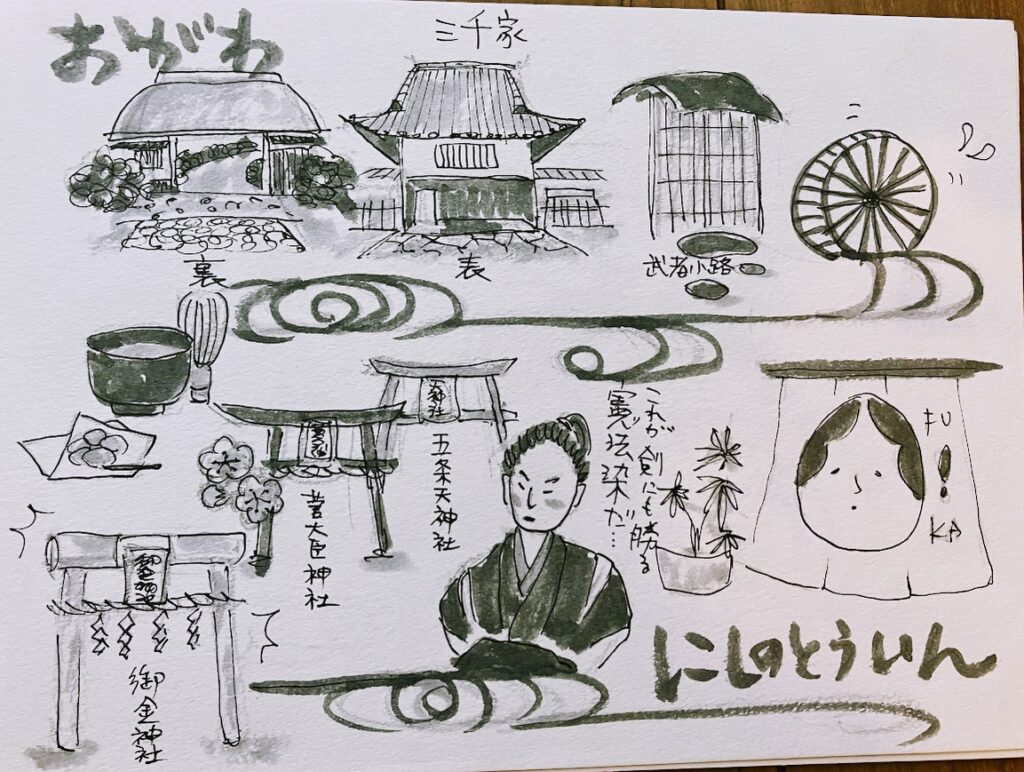 おがわ
三千家
裏
表
武者小路
五条天神社
菅大臣神社
御金神社
これが剣にも勝る
憲法染だ…
FU
!
KA
にしのとういん